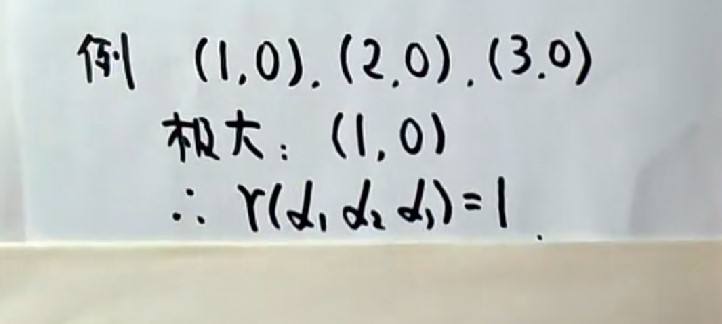 例 (1,0).(2.0).(3.0)
极大：(1,0)
∴ r(α₁ α₂ α₃)=1.